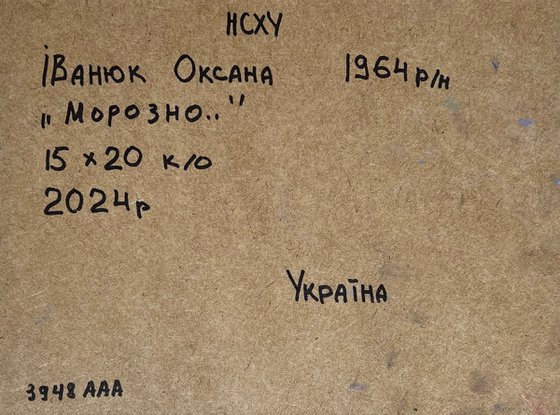 НСХУ
Іванюк Оксана 1964 р/н
„Морозно.."
15 х 20 к/о
2024р
Україна
3948 ААА